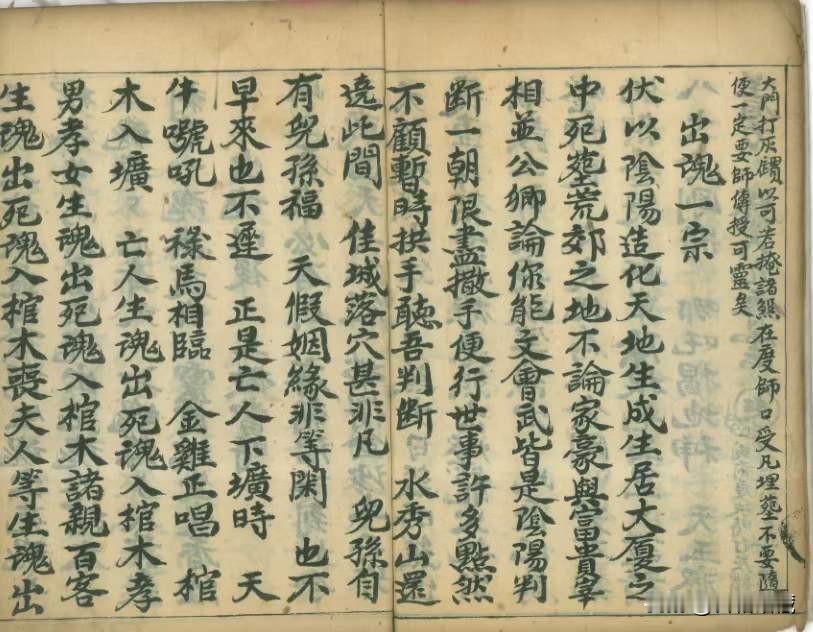 大門打灰以可若掩諸在度師口受凡埋墓不要隨
便一定要師傳授可靈矣
出魂一宗
伏以陰陽造化天地生成生居大厦之
中死塟荒郊之地不論家豪與富貴宰
相並公卿論你能文會武皆是陰陽判
断一朝限盡撒手便行世事許多點然
不顧暫時拱手聽吾判断 水秀山還
遶此間 佳城落穴甚非凡 兒孫自
有兒孫福 天假姻緣非等閑 也不
早來也不遲 正是亡人下壙時 天
牛號吼 禄馬相臨 金雞正唱 棺
木入壙 亡人生魂出死魂入棺木孝
男孝女生魂出死魂入棺木諸親百客
生魂出死魂入棺木喪夫人等生魂出